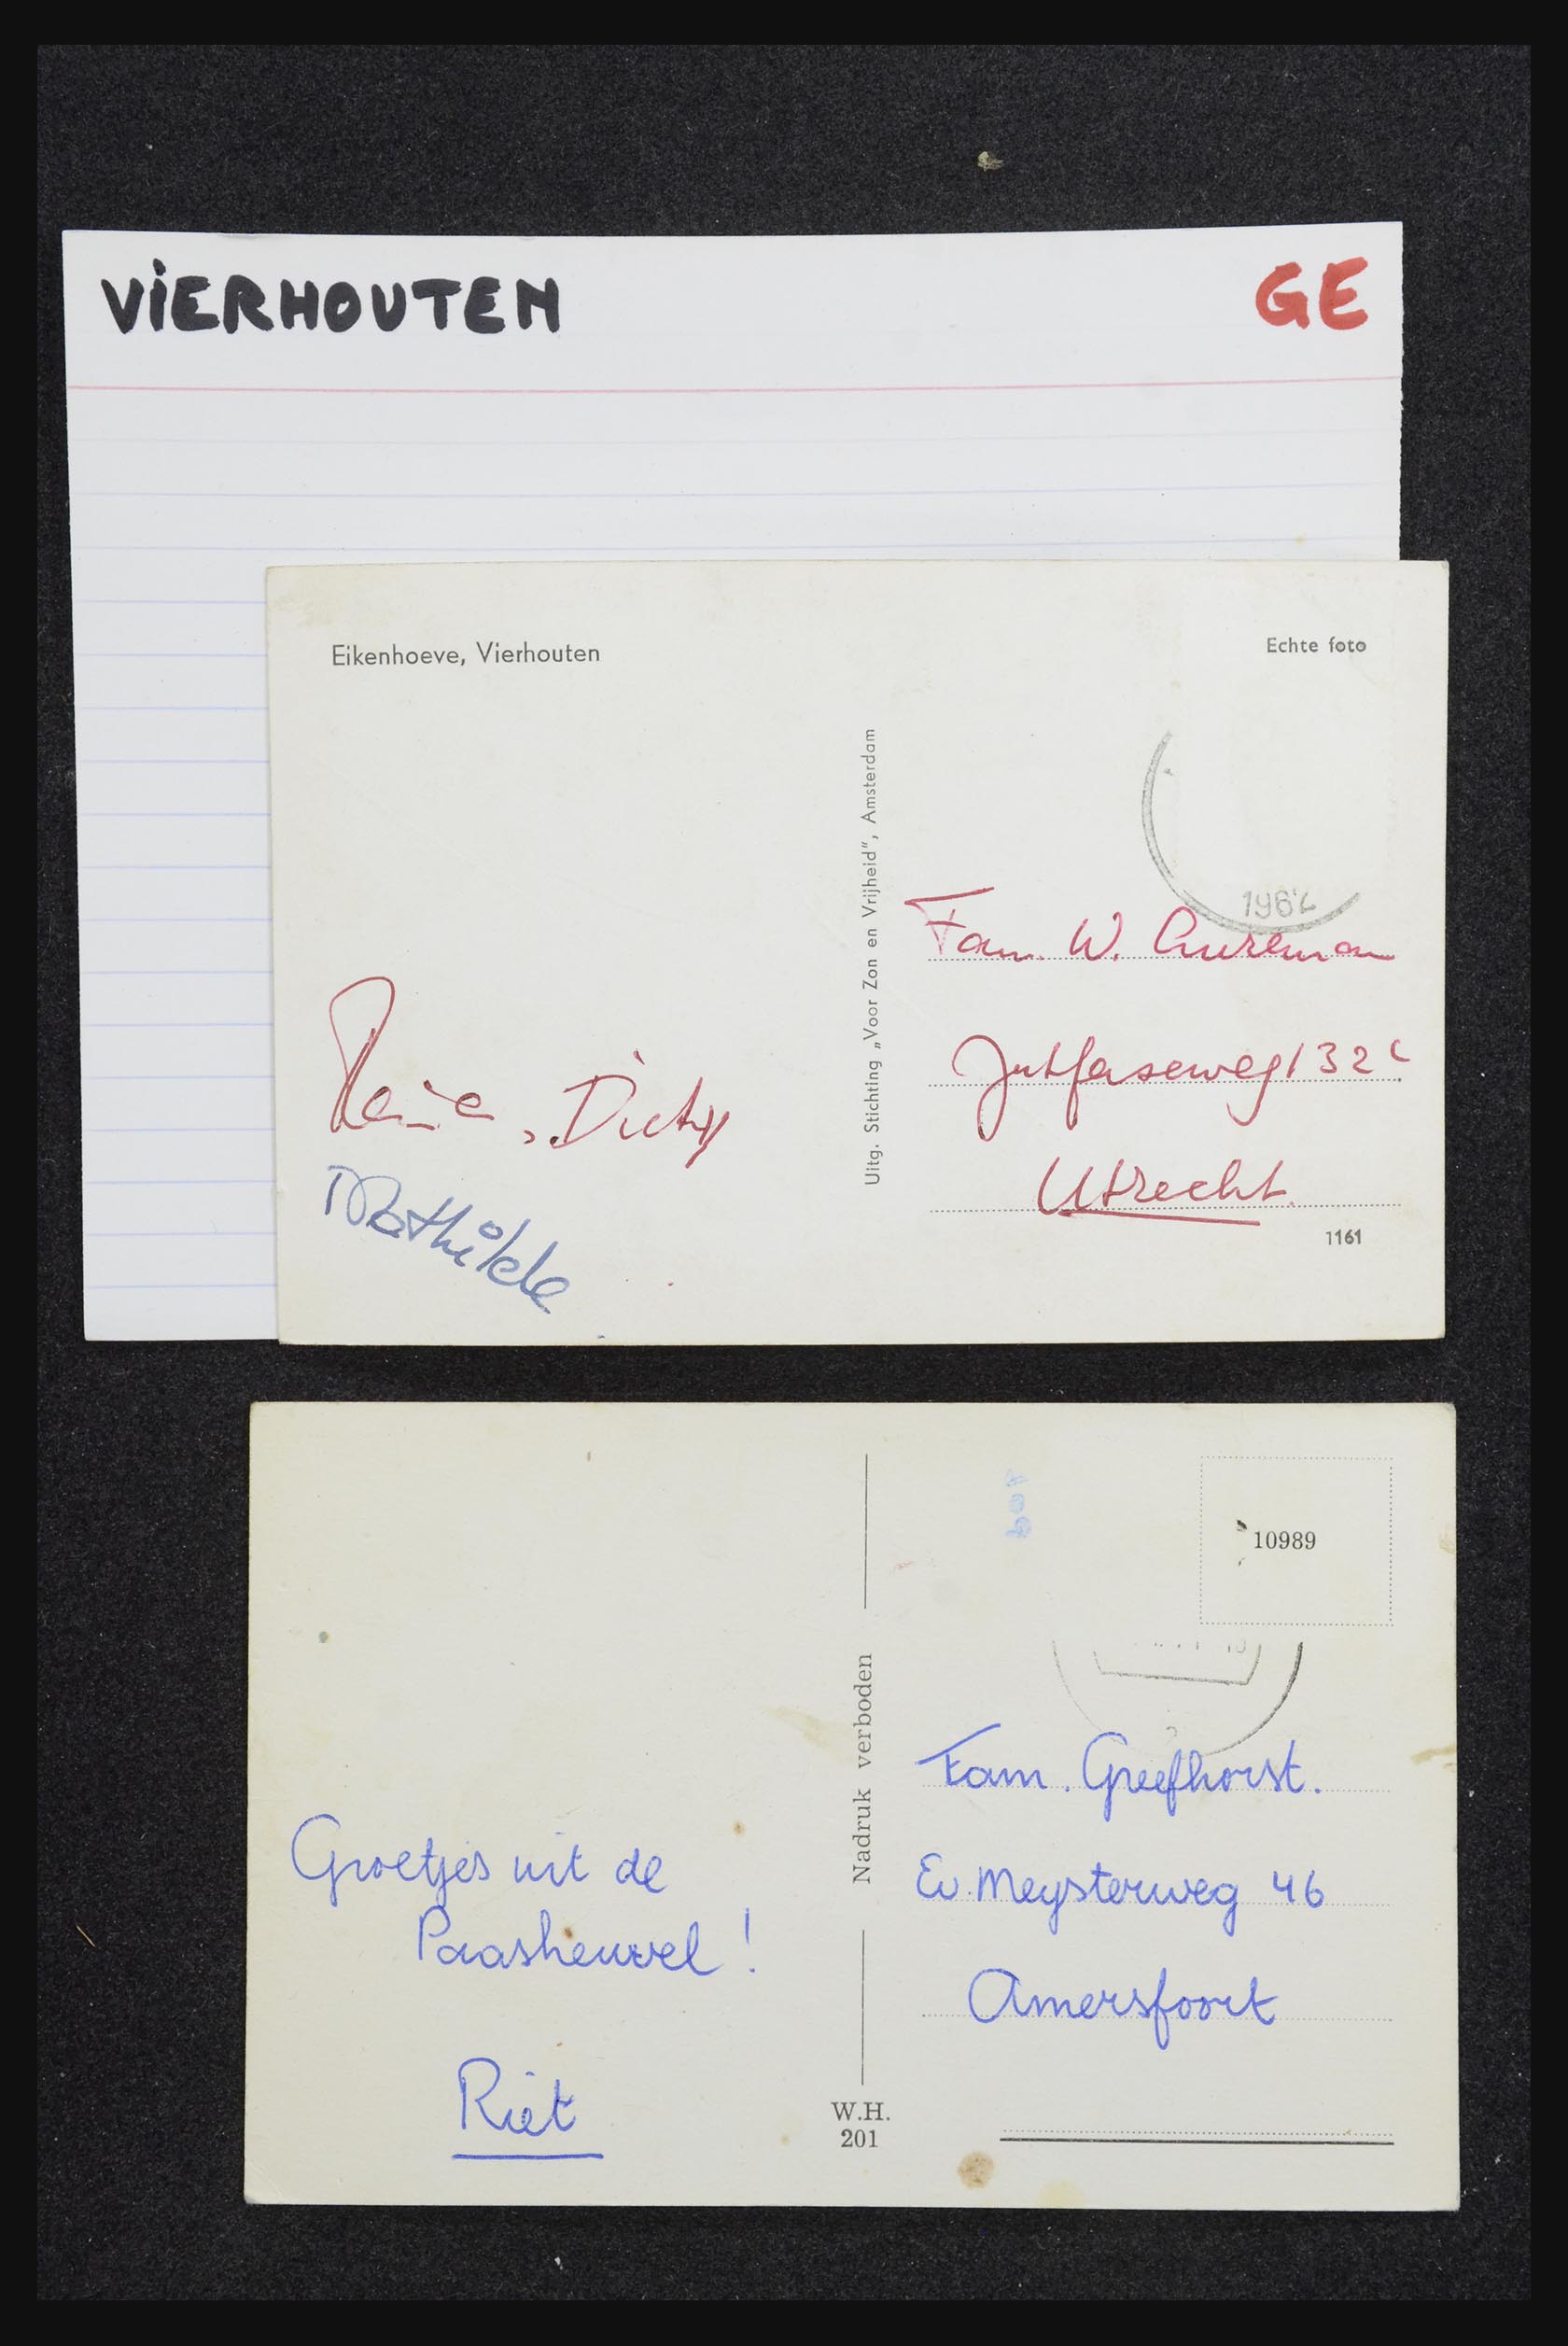 VIERHOUTEN GE
Eikenhoeve, Vierhouten
Echte foto
Uitg. Stichting „Voor Zon en Vrijheid”, Amsterdam
1962
Fam. W.
Jutfaseweg 132
Utrecht.
1161
Mathilde
10989
Nadruk verboden
Fam. Greefhorst.
Ev. Meysterweg 46
Amersfoort
Groetjes uit de
Paasheuvel!
Riet
W.H.
201